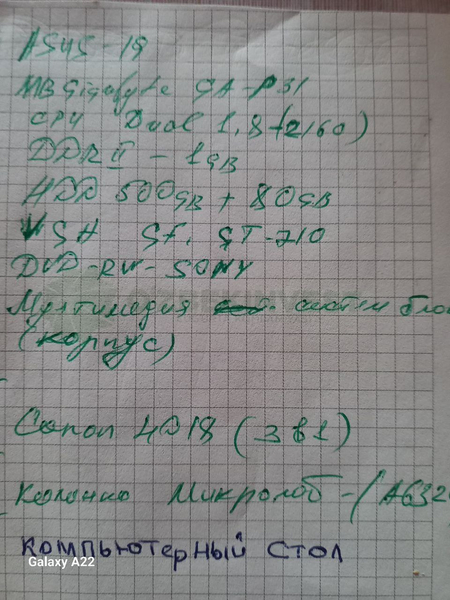 ASUS - 19
MB Gigabyte GA-P31
CPU Dual 1,8 (2160)
DDR II - 1GB
HDD 500GB + 80GB
VGA GF. GT-710
DVD-RW-SONY
Мултимедия систем бло
(корпус)
Canon 4018 (3 в 1)
Колонки Микролаб - (A632
компьютерный стол
Galaxy A22